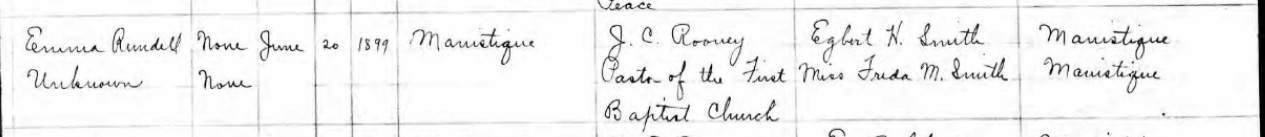 Peace
Emma Rundell None June 20 1899 Manistique J. C. Rooney Egbert H. Smith Manistique
Unknown None Pastor of the First Miss Freda M. Smith Manistique
Baptist Church